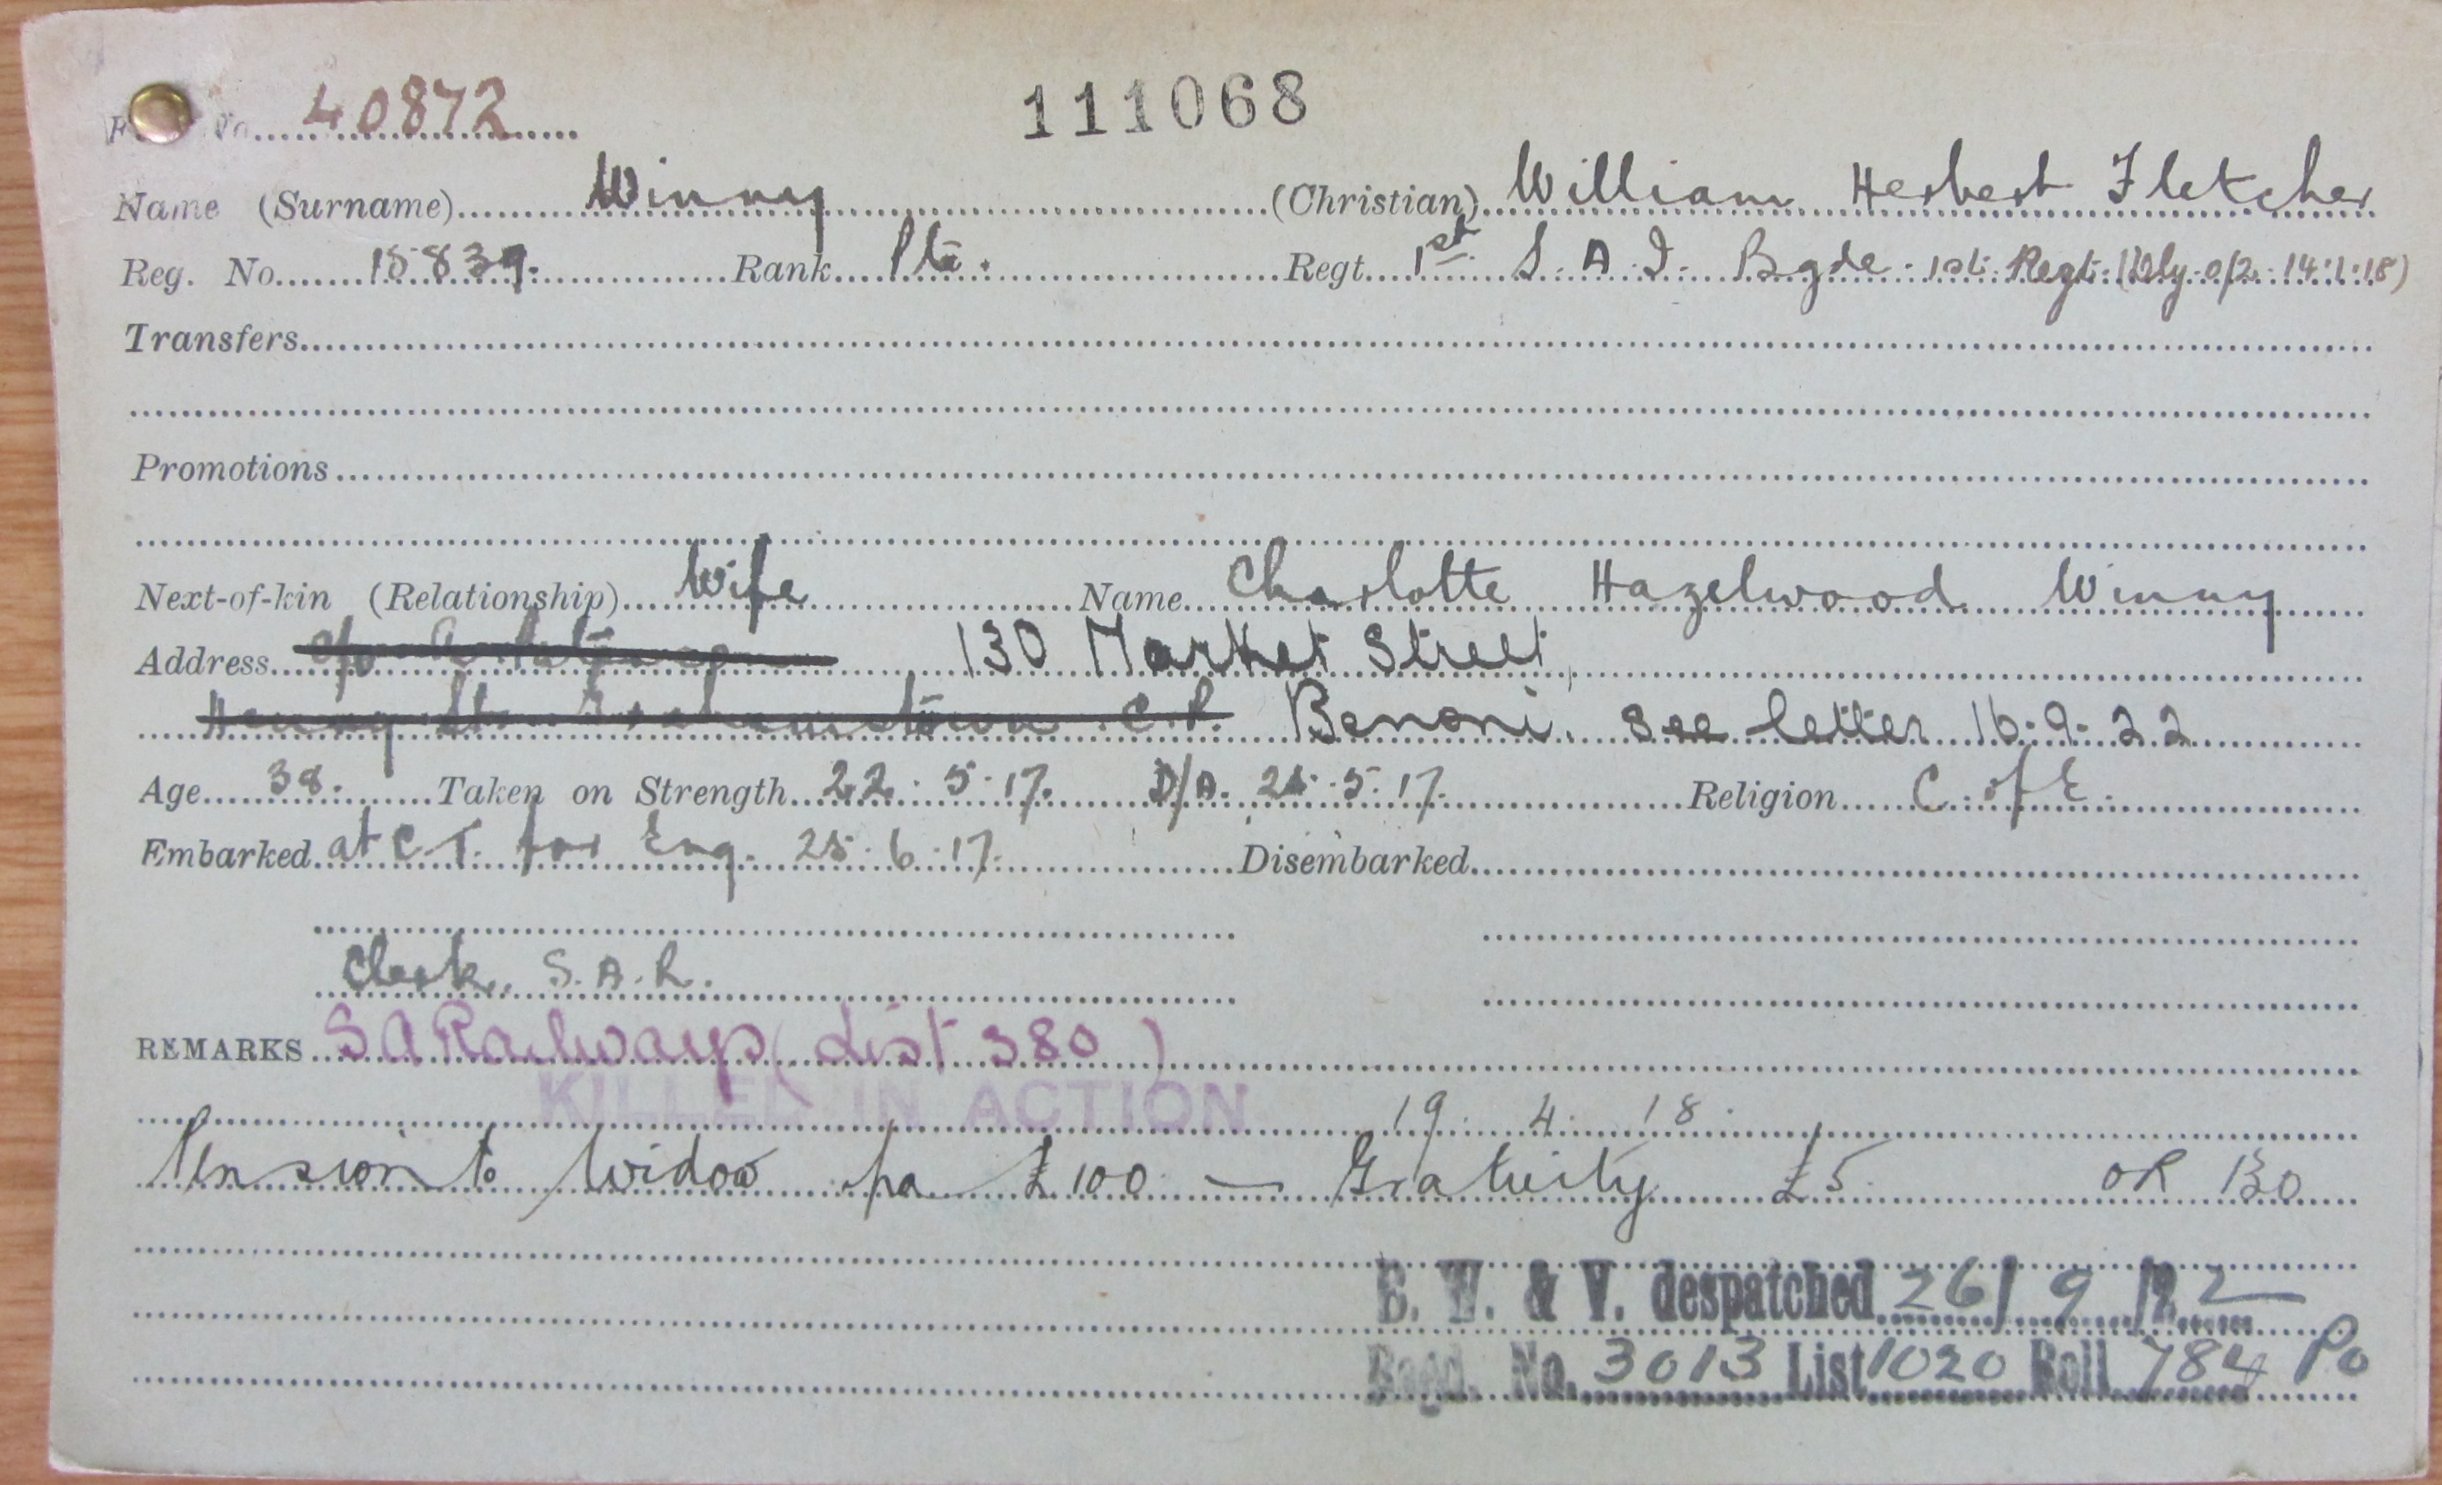 40872
111068
Name (Surname) Winny (Christian) William Herbert Fletcher
Reg. No. 15839. Rank Pte. Regt. 1st S.A.I. Bgde. 1st. Regt. (Dly. o/2. 14.1.18)
Transfers
Promotions
Next-of-kin (Relationship) Wife Name Charlotte Hazelwood Winny
Address c/o 130 Market Street,
Henry St. Grahamstown C.P. Benoni. See letter 16.9.22
Age 38. Taken on Strength 22.5.17. D/A. 25.5.17. Religion C. of E.
Embarked at C.T. for Eng. 25.6.17. Disembarked
Clerk. S.A.R.
REMARKS S A Railways (List 380)
KILLED IN ACTION 19.4.18.
Pension to Widow pa £100 — Gratuity £5 OR 130
B. W. & V. despatched 26/9/22
Regd. No. 3013 List 1020 Roll 784 Po